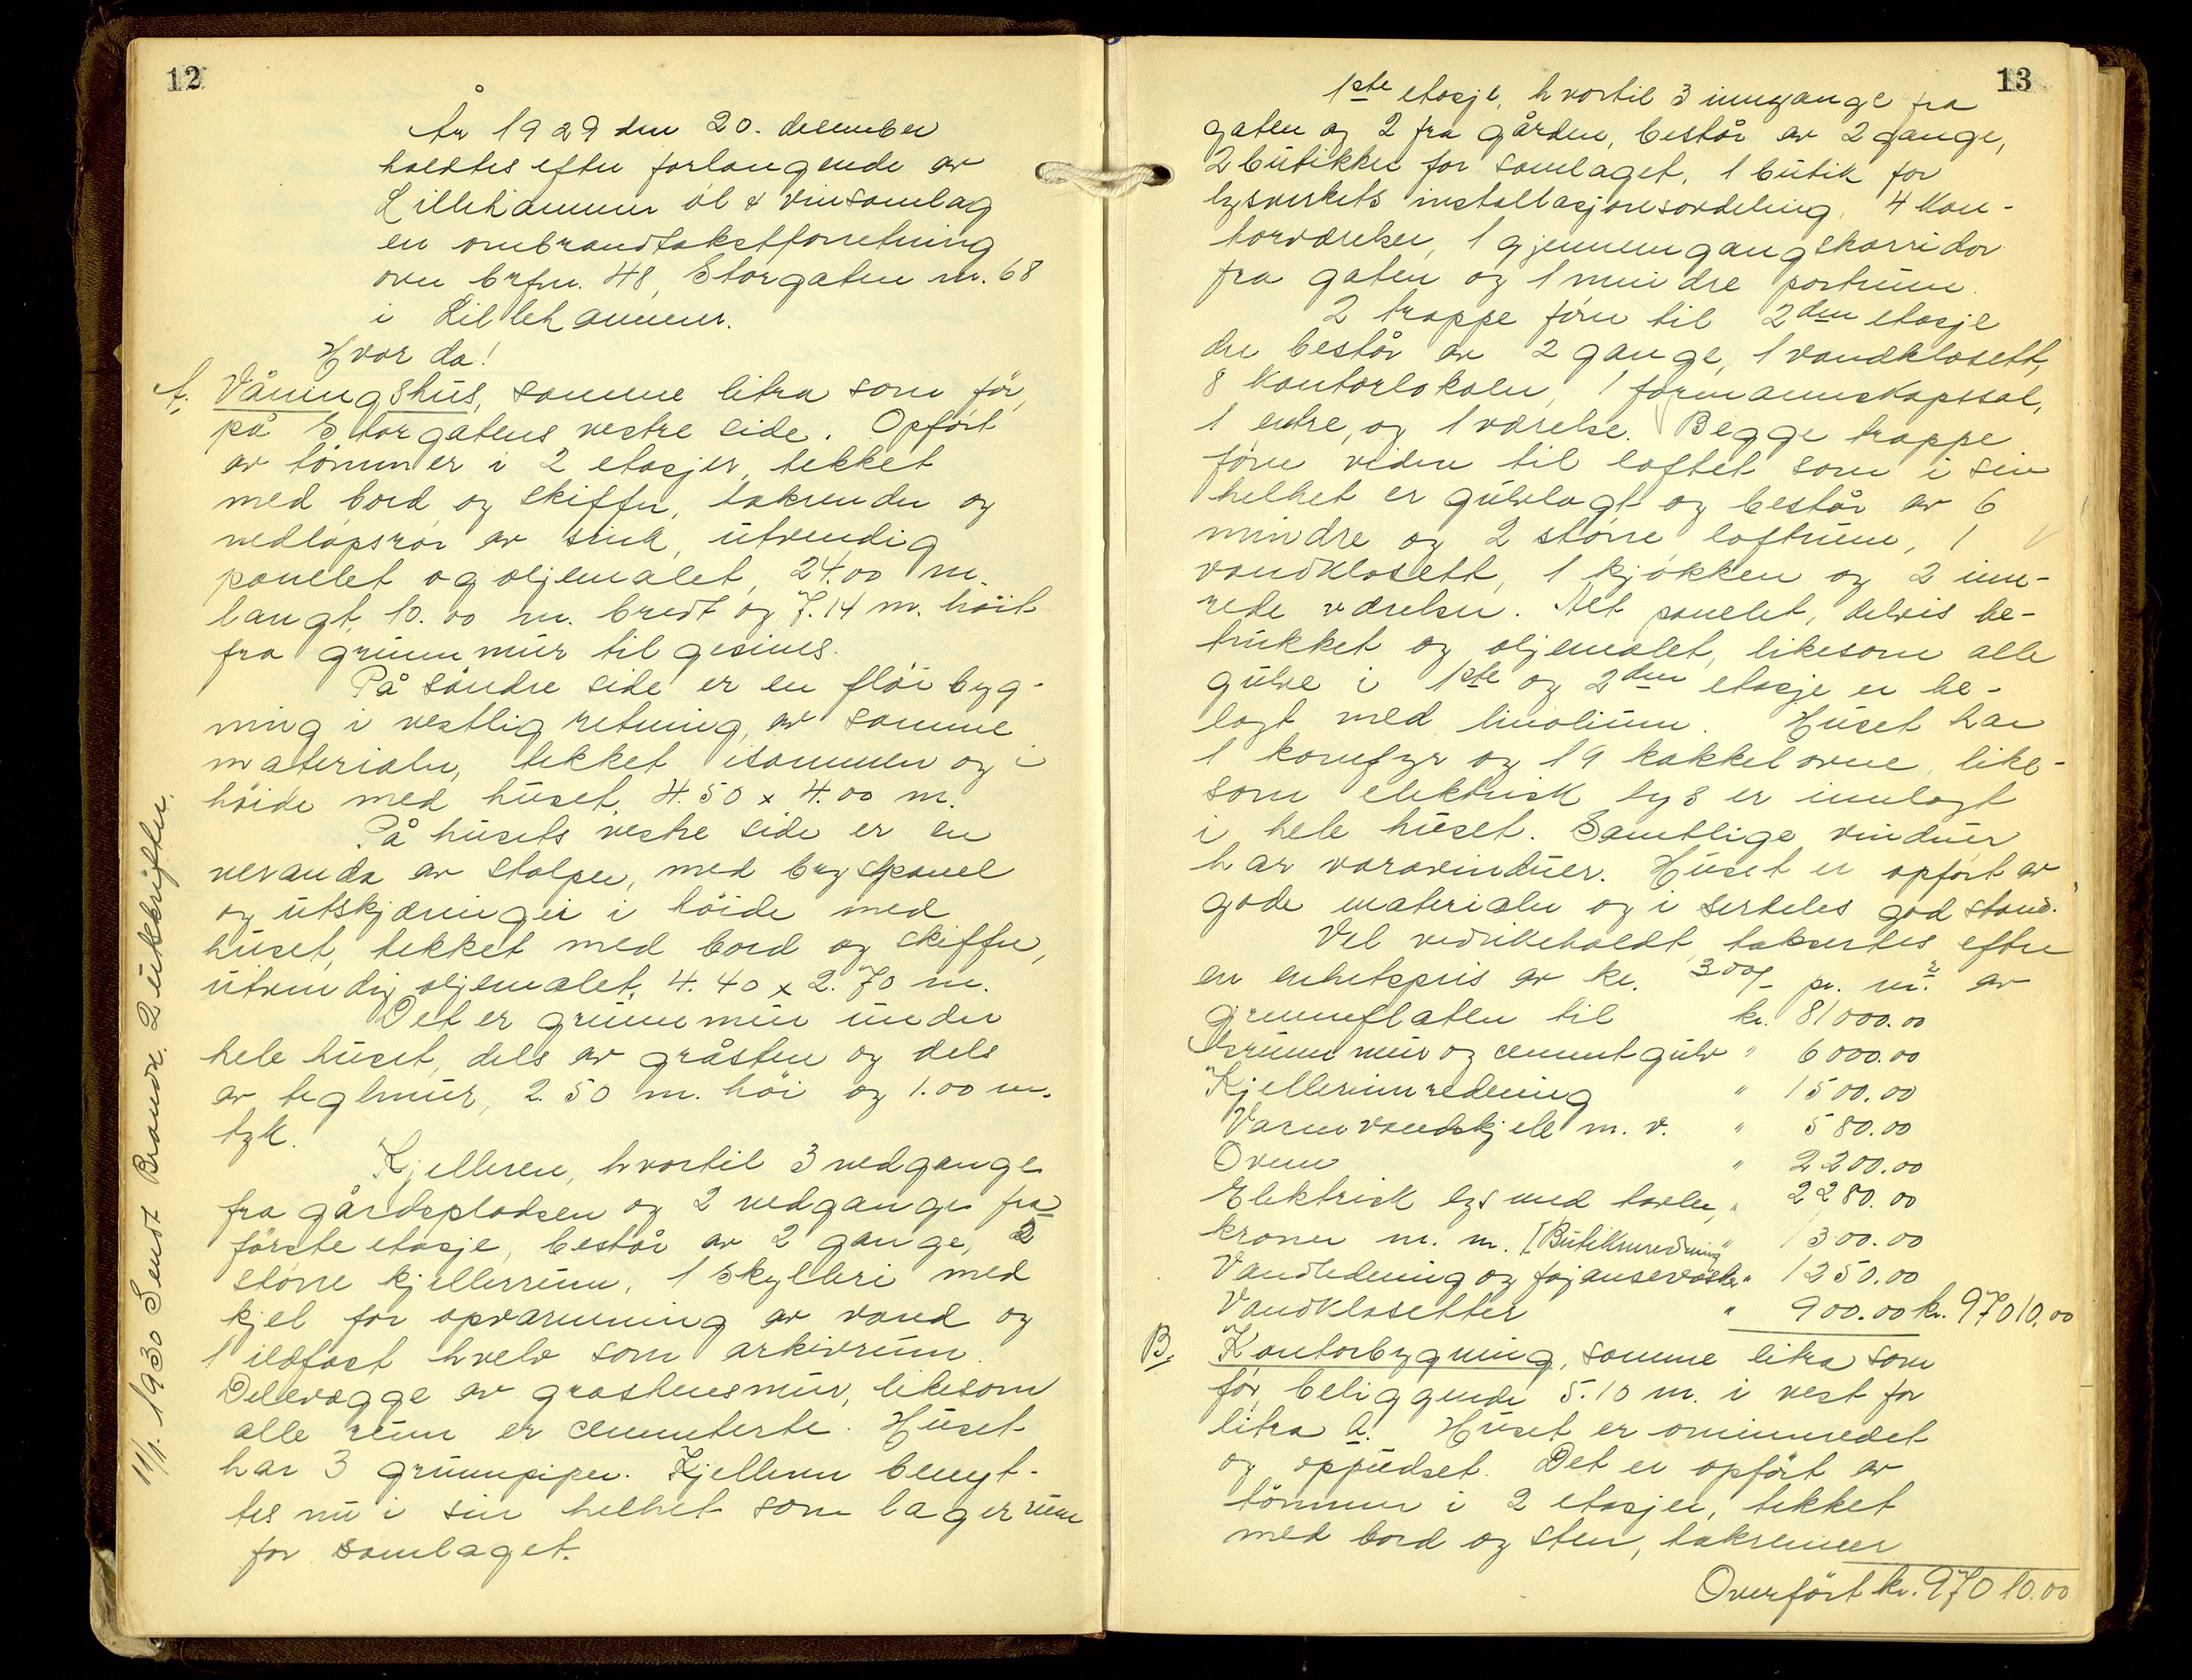 12
År 1929 den 20. desember
holdtes efter forlangende av
Lillehammer øl & vinsamlag
en ombrandtakstforretning
over brfnr. 48, Storgaten nr. 68
i Lillehammer.
Hvor da!
A. Våningshus, samme litra som før,
på Storgatens vestre side. Opført
av tømmer i 2 etasjer, tekket
med bord og skiffer, takrender og
nedløpsrør av sink, utvendig
panelet og oljemalet, 24.00 m.
langt, 10.00 m. bredt og 7.14 m. høit
fra grunnmur til gesims.
På søndre side er en fløibyg-
ning i vestlig retning, av samme
materialer, tekket isammen og i
høide med huset, 4.50 x 4.00 m.
På husets vestre side er en
veranda av stolper, med brystpanel
og utskjæringer i høide med
huset, tekket med bord og skiffer,
utvendig oljemalet, 4.40 x 2.70 m.
Det er grunnmur under
hele huset, dels av gråsten og dels
av teglmur, 2.50 m. høi og 1.00 m.
tyk.
Kjelleren, hvortil 3 nedgange
fra gårdspladsen og 2 nedgange fra
første etasje, består av 2 gange, 2
større kjellerrum, 1 skylleri med
kjel for opvarmning av vand og
1 ildfast hvelv som arkivrum.
Delevægge av gråstensmur, likesom
alle rum er cementerte. Huset
har 3 grunnpiper. Kjelleren benyt-
tes nu i sin helhet som lagerrum
for samlaget.
11/1. 1930 Sendt Brandk. 2 utskrifter.
13
1ste etasje, hvortil 3 innganger fra
gaten og 2 fra gården, består av 2 gange,
2 butikker for samlaget, 1 butik for
lysverkets installasjonsavdeling, 4 kon-
torværelser, 1 gjennemgangskorridor
fra gaten og 1 mindre portrum.
2 trappe fører til 2den etasje
der består av 2 gange, 1 vandklosett,
8 kontorlokaler, 1 formannskapssal,
1 entre, og 1 værelse. Begge trappe
fører videre til loftet som i sin
helhet er gulvlagt og består av 6
mindre og 2 større loftrum, 1
vandklosett, 1 kjøkken og 2 inn-
rede værelser. Alt panelet, delvis be-
trukket og oljemalet, likesom alle
gulve i 1ste og 2den etasje er be-
lagt med linolium. Huset har
1 komfyr og 19 kakkelovne, like-
som elektrisk lys er innlagt
i hele huset. Samtlige vinduer
har varevinduer. Huset er opført av
gode materialer og i serdeles god stand.
Vel vedlikeholdt, taksertes efter
en enhetspris av kr. 300/- pr. m.² av
grunnflaten til kr. 81000.00
Grunnmur og cementgulv " 6000.00
Kjellerinnredning " 1500.00
Varmvandskjele m. v. " 580.00
Ovner " 2200.00
Elektrisk lys med tavler, " 2280.00
kroner m. m. [Butikinredning " 1300.00
Vandledning og fajansevasker " 1250.00
Vandklosetter " 900.00 kr. 97010.00
B. Kontorbygning, samme litra som
før, beliggende 5.10 m. i vest for
litra A. Huset er ominnredet
og oppudset. Det er opført av
tømmer i 2 etasjer, tekket
med bord og sten, takrenner
Overført kr. 97010.00